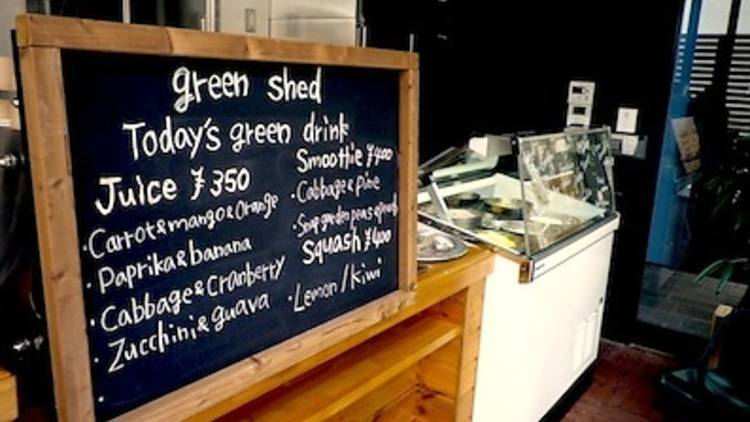 green shed
Today's green drink
Juice ¥350
·Carrot&mango&Orange
·Paprika&banana
·Cabbage&Cranberry
·Zucchini&guava
Smoothie ¥400
·Cabbage&Pine
·Snap garden peas&
Squash ¥400
·Lemon/kiwi